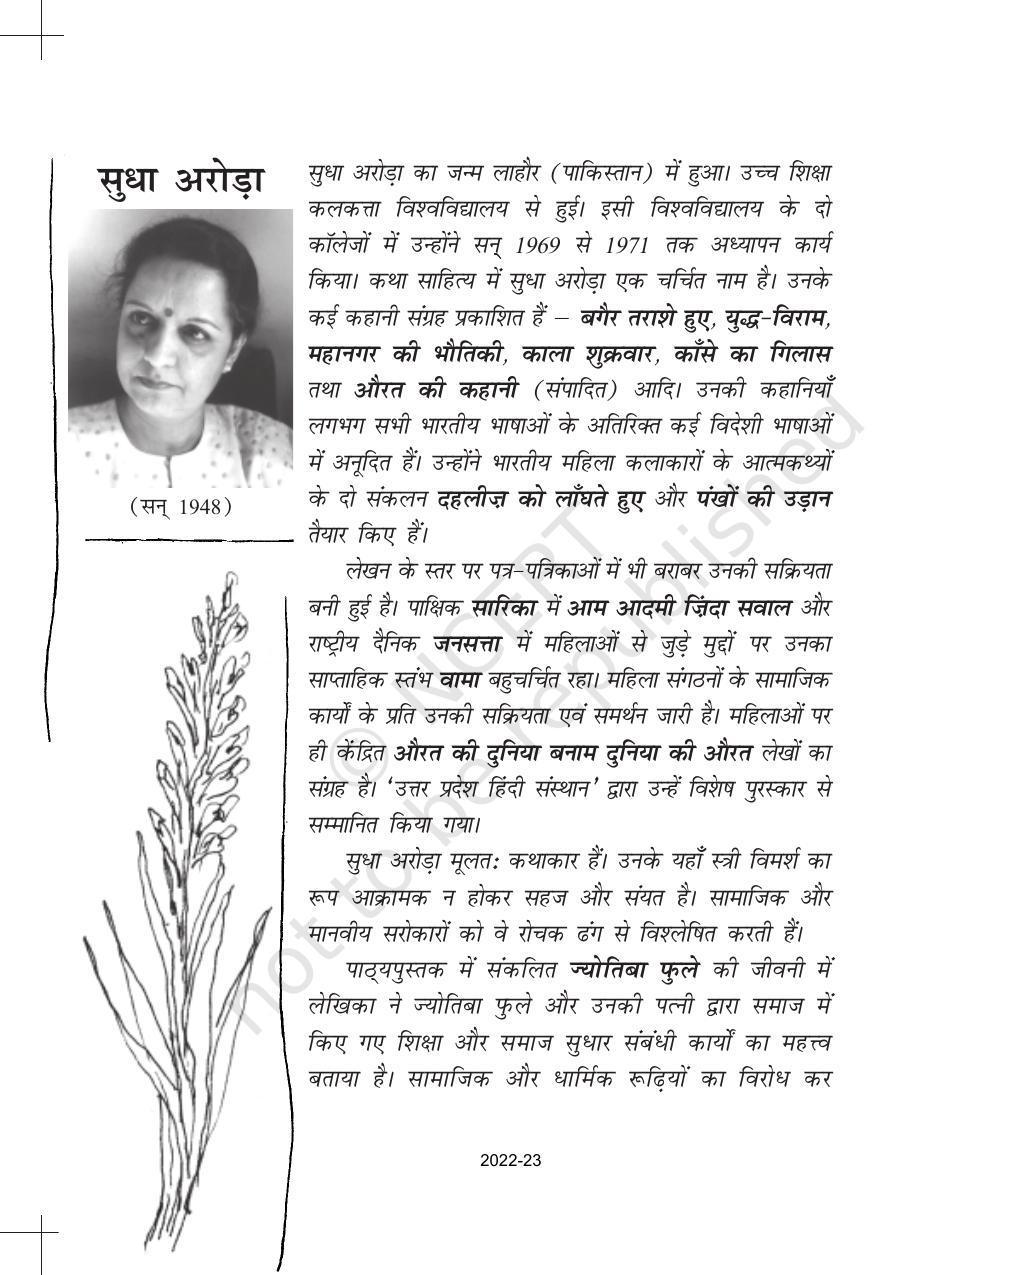 सुधा अरोड़ा
(सन् 1948)
सुधा अरोड़ा का जन्म लाहौर (पाकिस्तान) में हुआ। उच्च शिक्षा
कलकत्ता विश्वविद्यालय से हुई। इसी विश्वविद्यालय के दो
कॉलेजों में उन्होंने सन् 1969 से 1971 तक अध्यापन कार्य
किया। कथा साहित्य में सुधा अरोड़ा एक चर्चित नाम है। उनके
कई कहानी संग्रह प्रकाशित हैं – बगैर तराशे हुए, युद्ध-विराम,
महानगर की भौतिकी, काला शुक्रवार, काँसे का गिलास
तथा औरत की कहानी (संपादित) आदि। उनकी कहानियाँ
लगभग सभी भारतीय भाषाओं के अतिरिक्त कई विदेशी भाषाओं
में अनूदित हैं। उन्होंने भारतीय महिला कलाकारों के आत्मकथ्यों
के दो संकलन दहलीज़ को लाँघते हुए और पंखों की उड़ान
तैयार किए हैं।
लेखन के स्तर पर पत्र-पत्रिकाओं में भी बराबर उनकी सक्रियता
बनी हुई है। पाक्षिक सारिका में आम आदमी ज़िंदा सवाल और
राष्ट्रीय दैनिक जनसत्ता में महिलाओं से जुड़े मुद्दों पर उनका
साप्ताहिक स्तंभ वामा बहुचर्चित रहा। महिला संगठनों के सामाजिक
कार्यों के प्रति उनकी सक्रियता एवं समर्थन जारी है। महिलाओं पर
ही केंद्रित औरत की दुनिया बनाम दुनिया की औरत लेखों का
संग्रह है। ‘उत्तर प्रदेश हिंदी संस्थान’ द्वारा उन्हें विशेष पुरस्कार से
सम्मानित किया गया।
सुधा अरोड़ा मूलतः कथाकार हैं। उनके यहाँ स्त्री विमर्श का
रूप आक्रामक न होकर सहज और संयत है। सामाजिक और
मानवीय सरोकारों को वे रोचक ढंग से विश्लेषित करती हैं।
पाठ्यपुस्तक में संकलित ज्योतिबा फुले की जीवनी में
लेखिका ने ज्योतिबा फुले और उनकी पत्नी द्वारा समाज में
किए गए शिक्षा और समाज सुधार संबंधी कार्यों का महत्त्व
बताया है। सामाजिक और धार्मिक रूढ़ियों का विरोध कर
© NCERT
not to be republished
2022-23